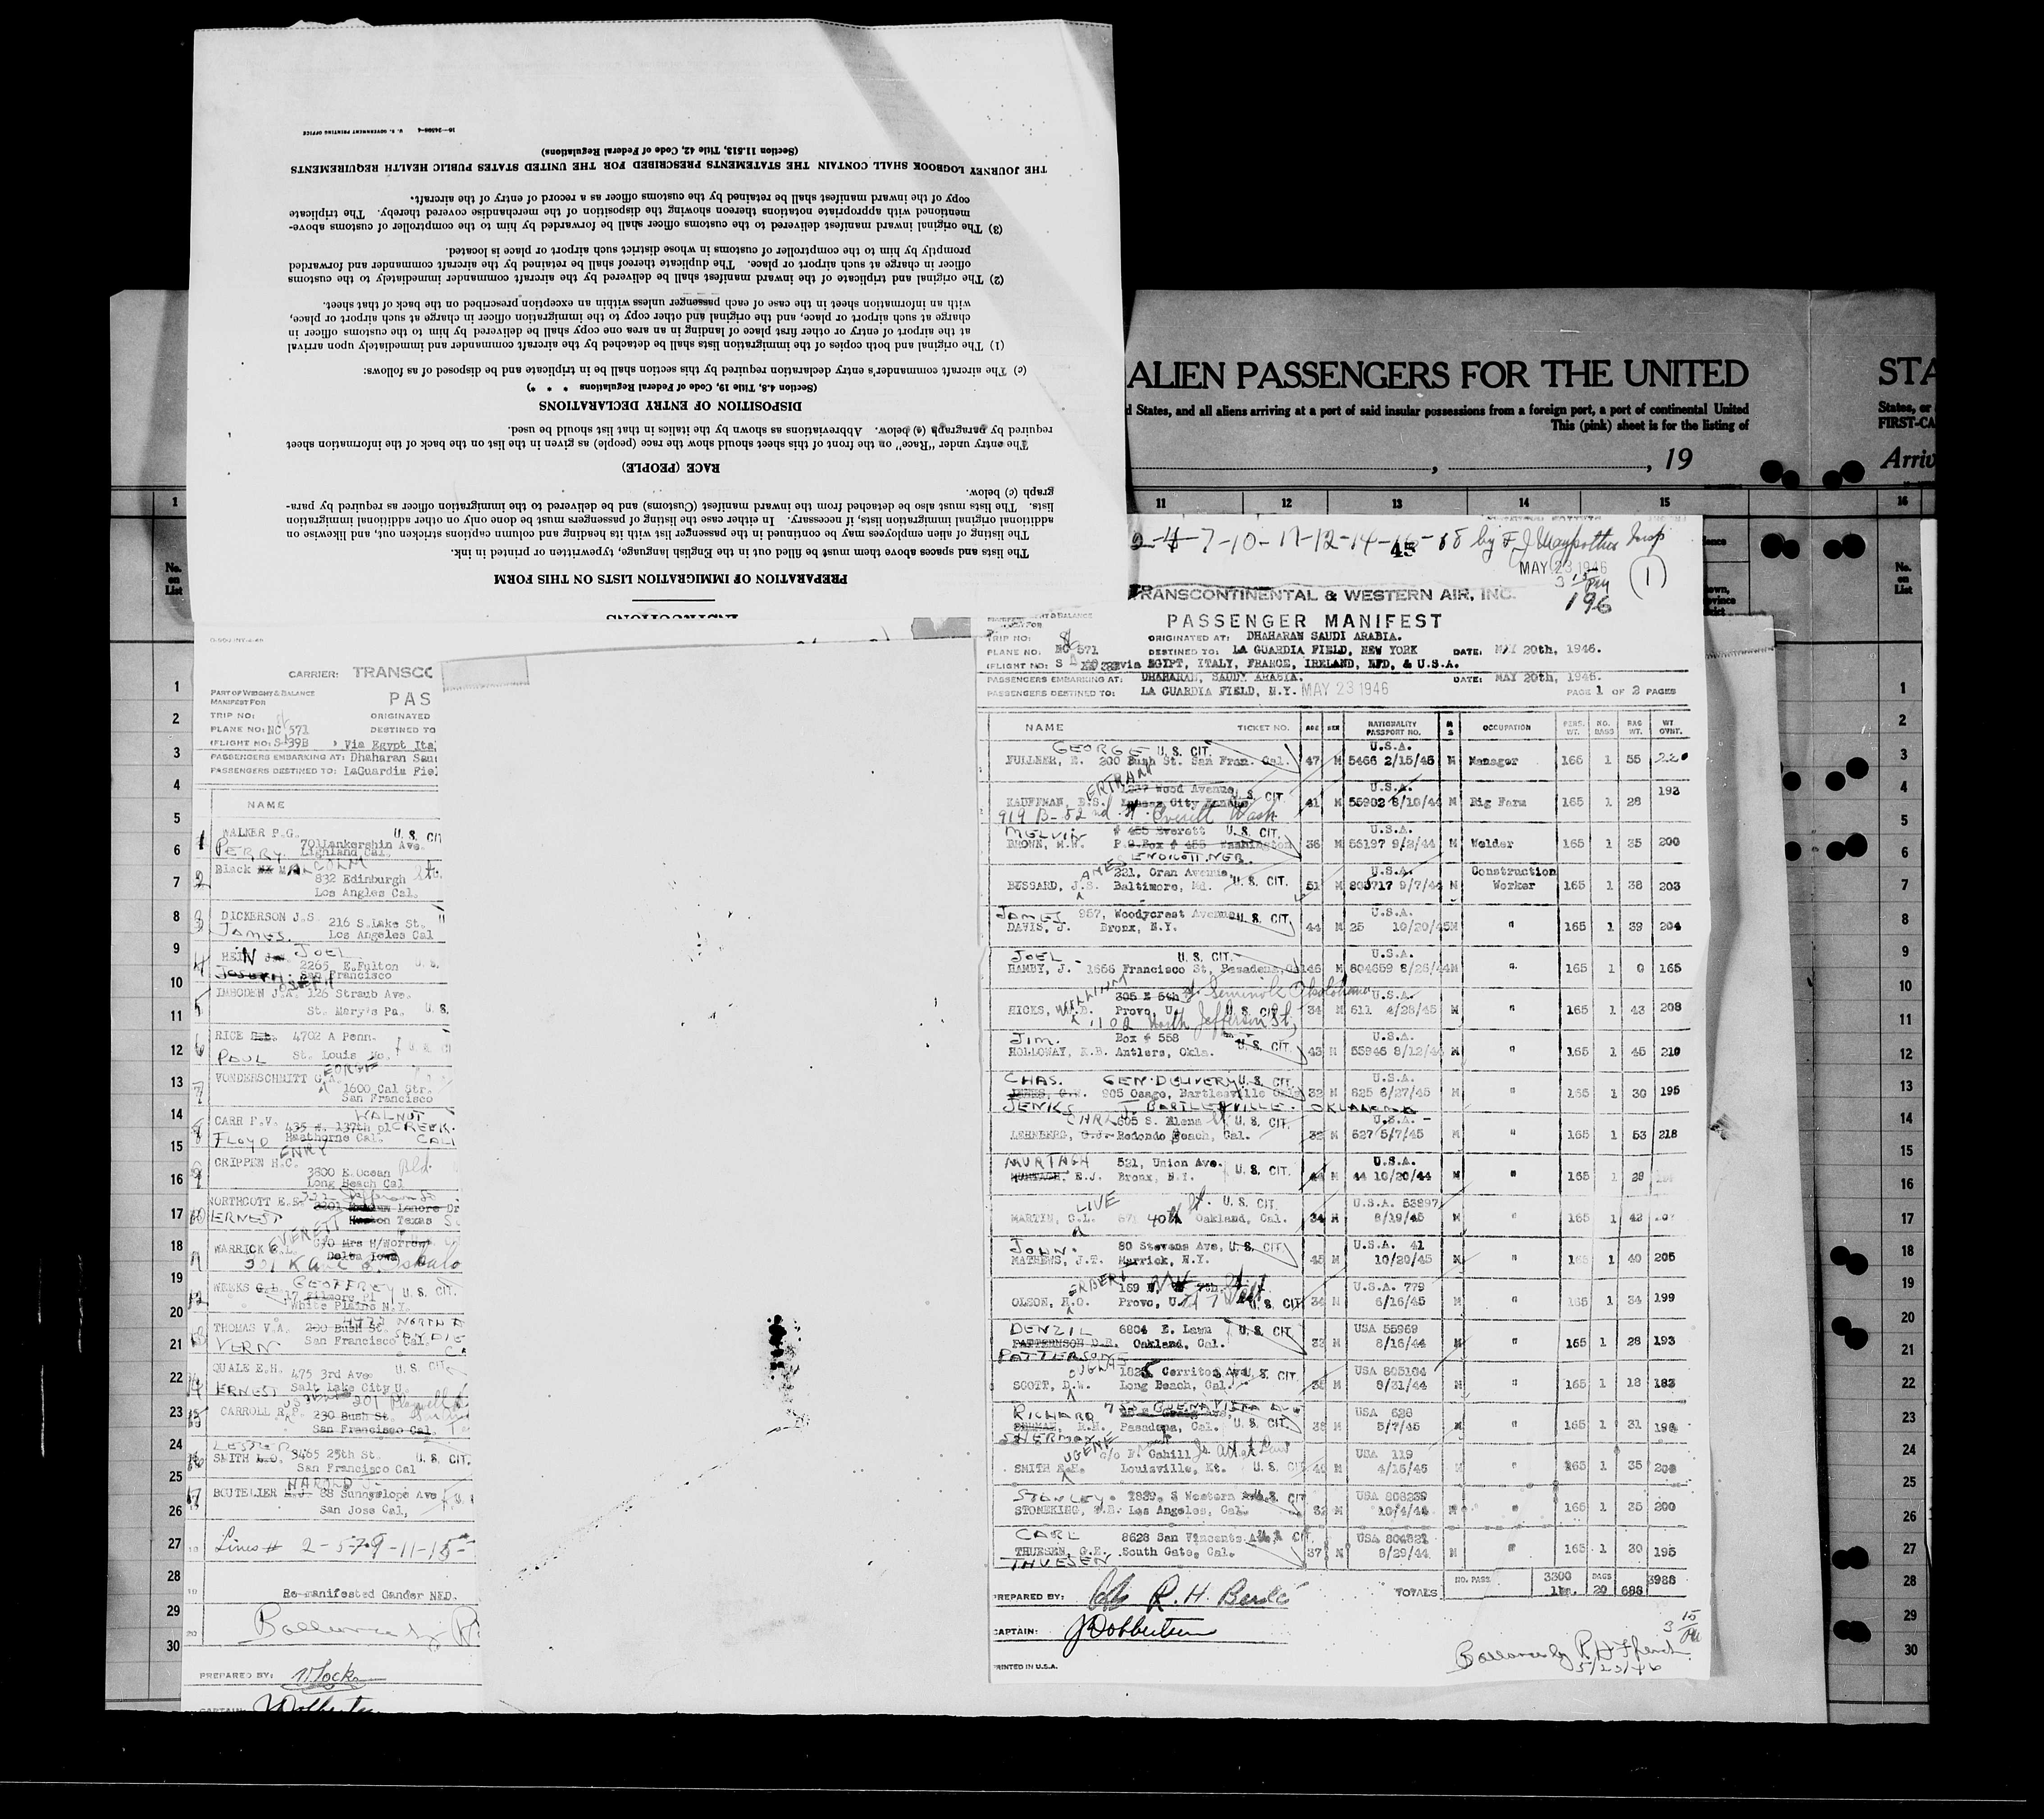 INSTRUCTIONS
PREPARATION OF IMMIGRATION LISTS ON THIS FORM
The lists and spaces above them must be filled out in the English language, typewritten or printed in ink.
The listing of alien employees may be continued in the passenger list with its heading and column captions stricken out, and likewise on
additional original immigration lists, if necessary. In either case the listing of passengers must be done only on other additional immigration
lists. The lists must also be detached from the inward manifest (Customs) and be delivered to the immigration officer as required by para-
graph (c) below.
RACE (PEOPLE)
The entry under "Race" on the front of this sheet should show the race (people) as given in the list on the back of the information sheet
required by paragraph (c) below. Abbreviations as shown by the italics in that list should be used.
DISPOSITION OF ENTRY DECLARATIONS
(Section 4.8, Title 19, Code of Federal Regulations * * *)
(c) The aircraft commander's entry declaration required by this section shall be in triplicate and be disposed of as follows:
(1) The original and both copies of the immigration lists shall be detached by the aircraft commander and immediately upon arrival
at the airport of entry or other first place of landing in an area one copy shall be delivered by him to the customs officer in
charge at such airport or place, and the original and other copy to the immigration officer in charge at such airport or place,
with an information sheet in the case of each passenger unless within an exception prescribed on the back of that sheet.
(2) The original and triplicate of the inward manifest shall be delivered by the aircraft commander immediately to the customs
officer in charge at such airport or place. The duplicate thereof shall be retained by the aircraft commander and forwarded
promptly by him to the comptroller of customs in whose district such airport or place is located.
(3) The original inward manifest delivered to the customs officer shall be forwarded by him to the comptroller of customs above-
mentioned with appropriate notations thereon showing the disposition of the merchandise covered thereby. The triplicate
copy of the inward manifest shall be retained by the customs officer as a record of entry of the aircraft.
THE JOURNEY LOGBOOK SHALL CONTAIN THE STATEMENTS PRESCRIBED FOR THE UNITED STATES PUBLIC HEALTH REQUIREMENTS
(Section 11.513, Title 42, Code of Federal Regulations)
U. S. GOVERNMENT PRINTING OFFICE
ALIEN PASSENGERS FOR THE UNITED
STA
d States, and all aliens arriving at a port of said insular possessions from a foreign port, a port of continental United
This (pink) sheet is for the listing of
States, or
FIRST-CA
, 19
Arriv
1 11 12 13 14 15 16
No. on List
No. on List
CARRIER: TRANSCO
PART OF WEIGHT & BALANCE
MANIFEST FOR
PAS
TRIP NO:
ORIGINATED
PLANE NO: NC 571
DESTINED TO
(FLIGHT NO: S-39B ) Via Egypt Ita
PASSENGERS EMBARKING AT: Dhaharan Sau
PASSENGERS DESTINED TO: LaGuardia Fiel
NAME
WALKER P.G. U. S. CIT
PERRY 701 Lankershin Ave.
Highland Cal.
Black MALCOLM
832 Edinburgh
Los Angles Cal.
DICKERSON J.S. 216 S.Lake St.
JAMES. Los Angeles Cal
HEIN JOEL
2265 E.Fulton
San Francisco
IMBODEN J.A. 126 Straub Ave.
St. Mary's Pa. U. S.
RICE 4702 A Penn.
PAUL St. Louis Mo.
VONDERSCHMITT G.A.
1600 Cal Str.
San Francisco
WALNUT
CARR F.V. 435 W. 137th pl CREEK.
FLOYD Hawthorne Cal. CALI
CRIPPEN H.C. ENRY
3800 E.Ocean Bld.
Long Beach Cal
NORTHCOTT E.E.
ERNEST Texas
WARRICK E.L. EVERETT
Delta Iowa
WEEKS GEOFFREY
17 Gilmore Pl U. S. CIT.
White Plains N.Y.
THOMAS V.A. 200 Bush St.
VERN San Francisco Cal.
QUALE E.H. 475 3rd Ave U. S. CIT
ERNEST Salt Lake City U.
CARROLL R.P. 230 Bush St.
San Francisco Cal.
LESTER
SMITH 3465 25th St. U. S. CIT.
San Francisco Cal
HAROLD
BOUTELIER 88 Sunnyslope Ave
San Jose Cal,
Lines # 2-5-7-9-11-15
Re-manifested Gander NFD.
PREPARED BY:
CAPTAIN:
2-4-7-10-11-12-14-16-18 by F J Maypother Insp
45
MAY 23 1946
3 15 PM
196
(1)
TRANSCONTINENTAL & WESTERN AIR, INC.
PASSENGER MANIFEST
TRIP NO: ORIGINATED AT: DHAHARAN SAUDI ARABIA.
PLANE NO: NC 571 DESTINED TO: LA GUARDIA FIELD, NEW YORK DATE: MAY 20th, 1946.
(FLIGHT NO: via EGYPT, ITALY, FRANCE, IRELAND, NFD, & U.S.A.
PASSENGERS EMBARKING AT: DHAHARAN, SAUDY ARABIA. DATE: MAY 20th, 1946.
PASSENGERS DESTINED TO: LA GUARDIA FIELD, N.Y. MAY 23 1946 PAGE 1 OF 2 PAGES
NAME TICKET NO. AGE SEX NATIONALITY PASSPORT NO. M S OCCUPATION PERS. WT. NO. BAGS BAG WT. WT. OVNT.
GEORGE U. S. CIT. U.S.A.
FULLNER, E. 200 Bush St. San Fran. Cal. 47 M 5466 2/15/45 M Manager 165 1 55 220
ERTRAM 1237 Wood Avenue U. S. CIT. U.S.A.
KAUFFMAN, B.S. Kansas City Kansas 41 M 55902 8/10/44 M Rig Form 165 1 28 193
919 B-52nd St Everett Wash
MELVIN # 455 Everett U. S. CIT. U.S.A.
BROWN, M.W. P.O.Box # 455 Washington 36 M 56197 9/2/44 M Welder 165 1 35 200
ENDICOTT, NEB.
AMES 221, Oran Avenue, U. S. CIT. U.S.A. Construction
BUSSARD, J.S. Baltimore, Md. 51 M 803717 9/7/44 M Worker 165 1 38 203
JAMES 957, Woodycrest Avenue U. S. CIT. U.S.A.
DAVIS, J. Bronx, N.Y. 44 M 25 10/20/45 M " 165 1 39 204
JOEL U. S. CIT. U.S.A.
HAMBY, J. 1666 Francisco St, Pasadena, 46 M 804659 8/26/44 M " 165 1 0 165
WILLIAM 305 E 5th Seminole Oklahoma U.S.A.
HICKS, W.B. Provo, U. U. S. CIT. 34 M 611 4/28/45 M " 165 1 43 208
1102 North Jefferson St,
JIM. Box # 558 U. S. CIT. U.S.A.
HOLLOWAY, R.B. Antlers, Okla. 43 M 55946 8/12/44 M " 165 1 45 210
CHAS. GEN. DELIVERY U. S. CIT. U.S.A.
905 Osage, Bartlesville Okla 32 M 625 6/27/45 M " 165 1 30 195
JENKS BARTLESVILLE. OKLAHOMA
605 S. Elena U. S. CIT. U.S.A.
LEHNBERG, C.J. Redondo Beach, Cal. 32 M 627 5/7/45 M " 165 1 53 218
MURTAGH 521, Union Ave. U. S. CIT. U.S.A.
E.J. Bronx, N.Y. 44 M 44 10/20/44 M " 165 1 28
LIVE St. U. S. CIT. U.S.A. 53897
MARTIN, C.L. 40th Oakland, Cal. 34 M 8/19/45 M " 165 1 42
JOHN. 80 Stevens Ave, U. S. CIT. U.S.A. 41
MATHEWS, J.T. Merrick, N.Y. 45 M 10/20/45 M " 165 1 40 205
ERBERT U.S.A. 779
OLSON, H.O. Provo, U. S. CIT. 34 M 6/16/45 M " 165 1 34 199
DENZIL 6804 E. Lawn U. S. CIT. USA 55969
PATTERNSON D.E. Oakland, Cal. 33 M 8/16/44 M " 165 1 28 193
PATTERSON
1825 Cerritos Ave. U. S. CIT. USA 805184
SCOTT, D.W. Long Beach, Cal. 35 M 8/31/44 M " 165 1 18 183
RICHARD BUENA VISTA AVE USA 628
R.H. Pasadena, Cal. U. S. CIT. 38 M 5/7/45 M " 165 1 31 196
SHERMAN
UGENE c/o F. Cahill Jr. Att at Law USA 119
SMITH E.H. Louisville, Kt. U. S. CIT 40 M 4/15/45 M " 165 1 35 200
STANLEY. 7839, S Western Ave. U. S. CIT USA 808239
STONEKING, Los Angeles, Cal. 32 M 10/4/44 M " 165 1 35 200
CARL 8628 San Vincents Ave. USA 804821
THUESEN, G.E. South Gate, Cal. 37 M 8/29/44 M " 165 1 30 195
THUESEN
TOTALS NO. PASS. 3300 BAGS 20 688 3988
PREPARED BY: R. H.
CAPTAIN:
PRINTED IN U.S.A.
3 15 PM
5/23/46
1
2
3
4
5
6
7
8
9
10
11
12
13
14
15
16
17
18
19
20
21
22
23
24
25
26
27
28
29
30